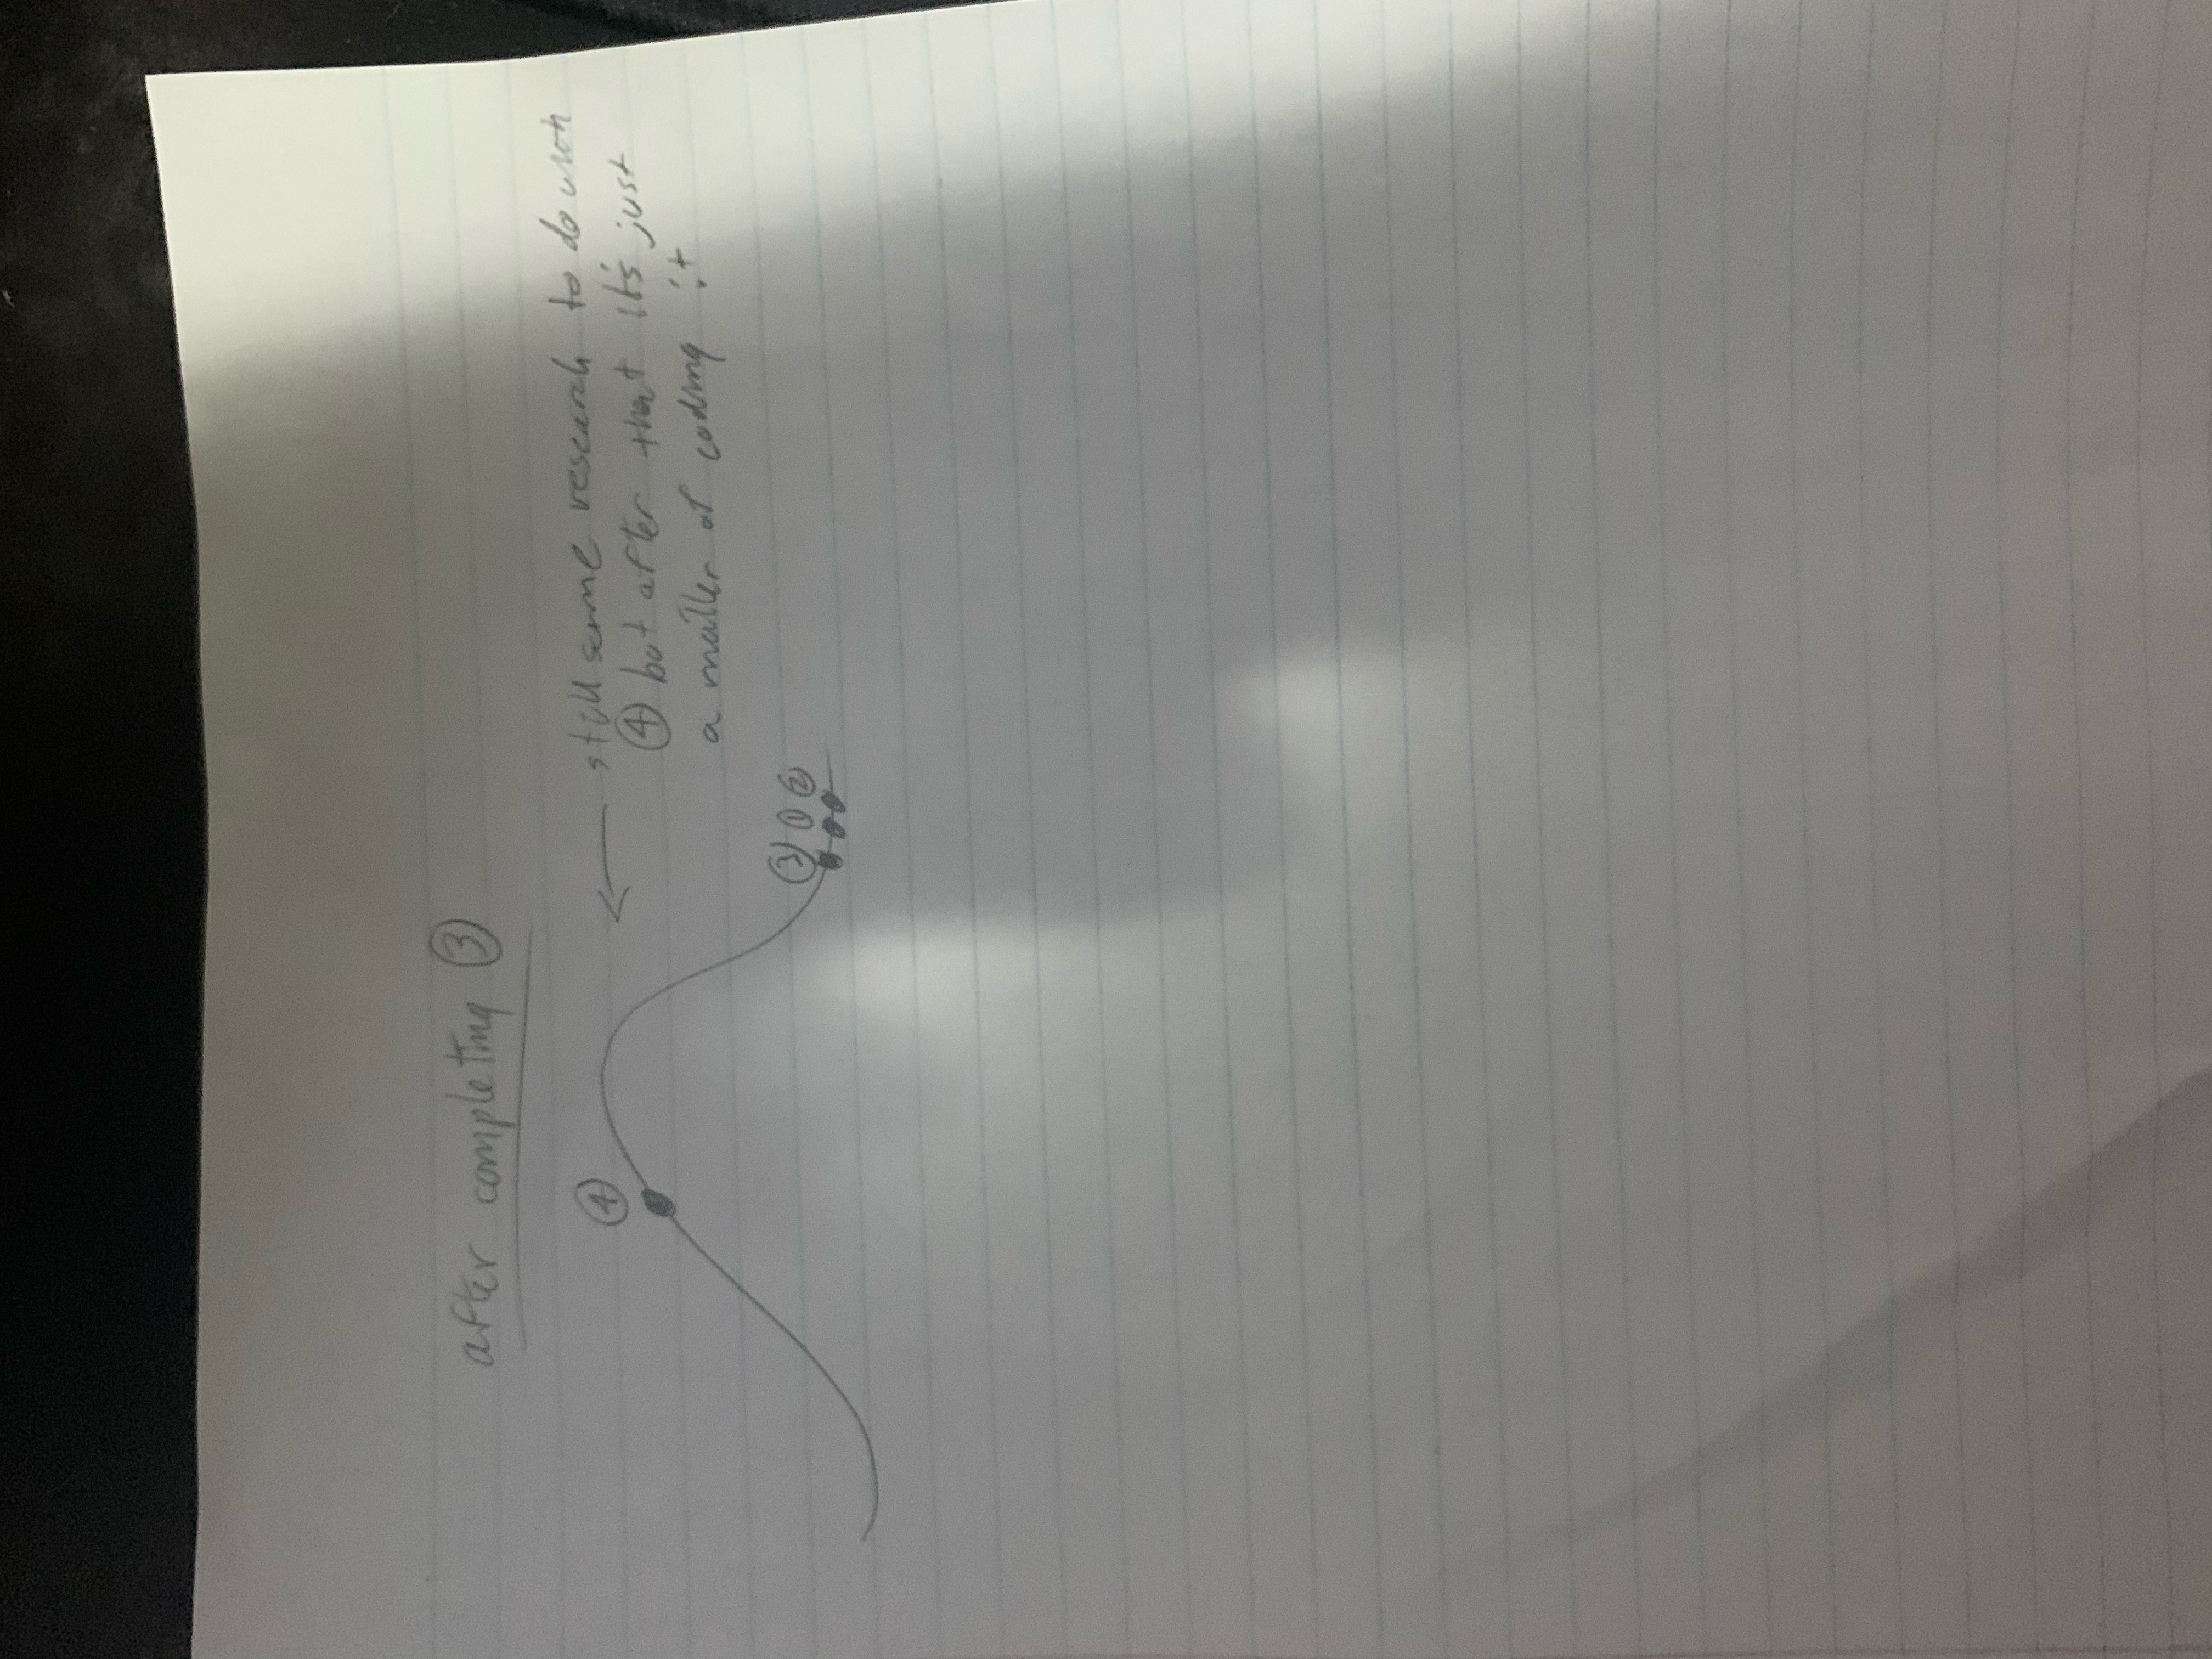 after completing ③
④
still some research to do with
④ but after that it's just
a matter of coding it
③ ① ②